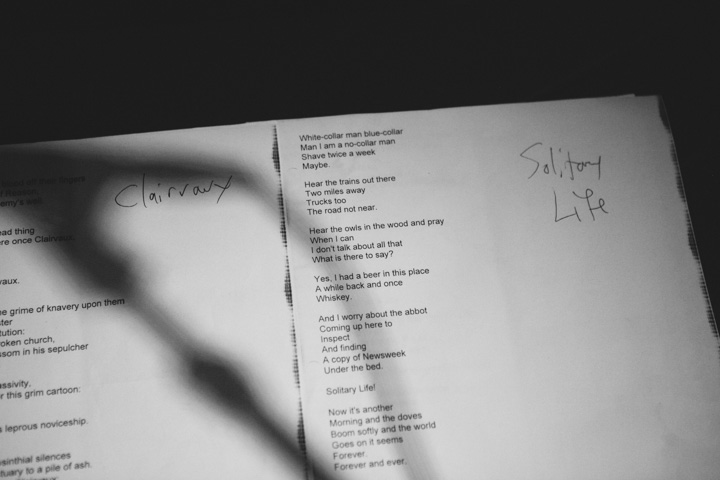 Clairvaux
ead thing
re once Clairvaux.
vaux.
e grime of knavery upon them
ster
tution:
oken church,
ssom in his sepulcher
assivity,
r this grim cartoon:
s leprous noviceship.
sinthial silences
tuary to a pile of ash.
Solitary
Life
White-collar man blue-collar
Man I am a no-collar man
Shave twice a week
Maybe.
Hear the trains out there
Two miles away
Trucks too
The road not near.
Hear the owls in the wood and pray
When I can
I don't talk about all that
What is there to say?
Yes, I had a beer in this place
A while back and once
Whiskey.
And I worry about the abbot
Coming up here to
Inspect
And finding
A copy of Newsweek
Under the bed.
Solitary Life!
Now it's another
Morning and the doves
Boom softly and the world
Goes on it seems
Forever.
Forever and ever.